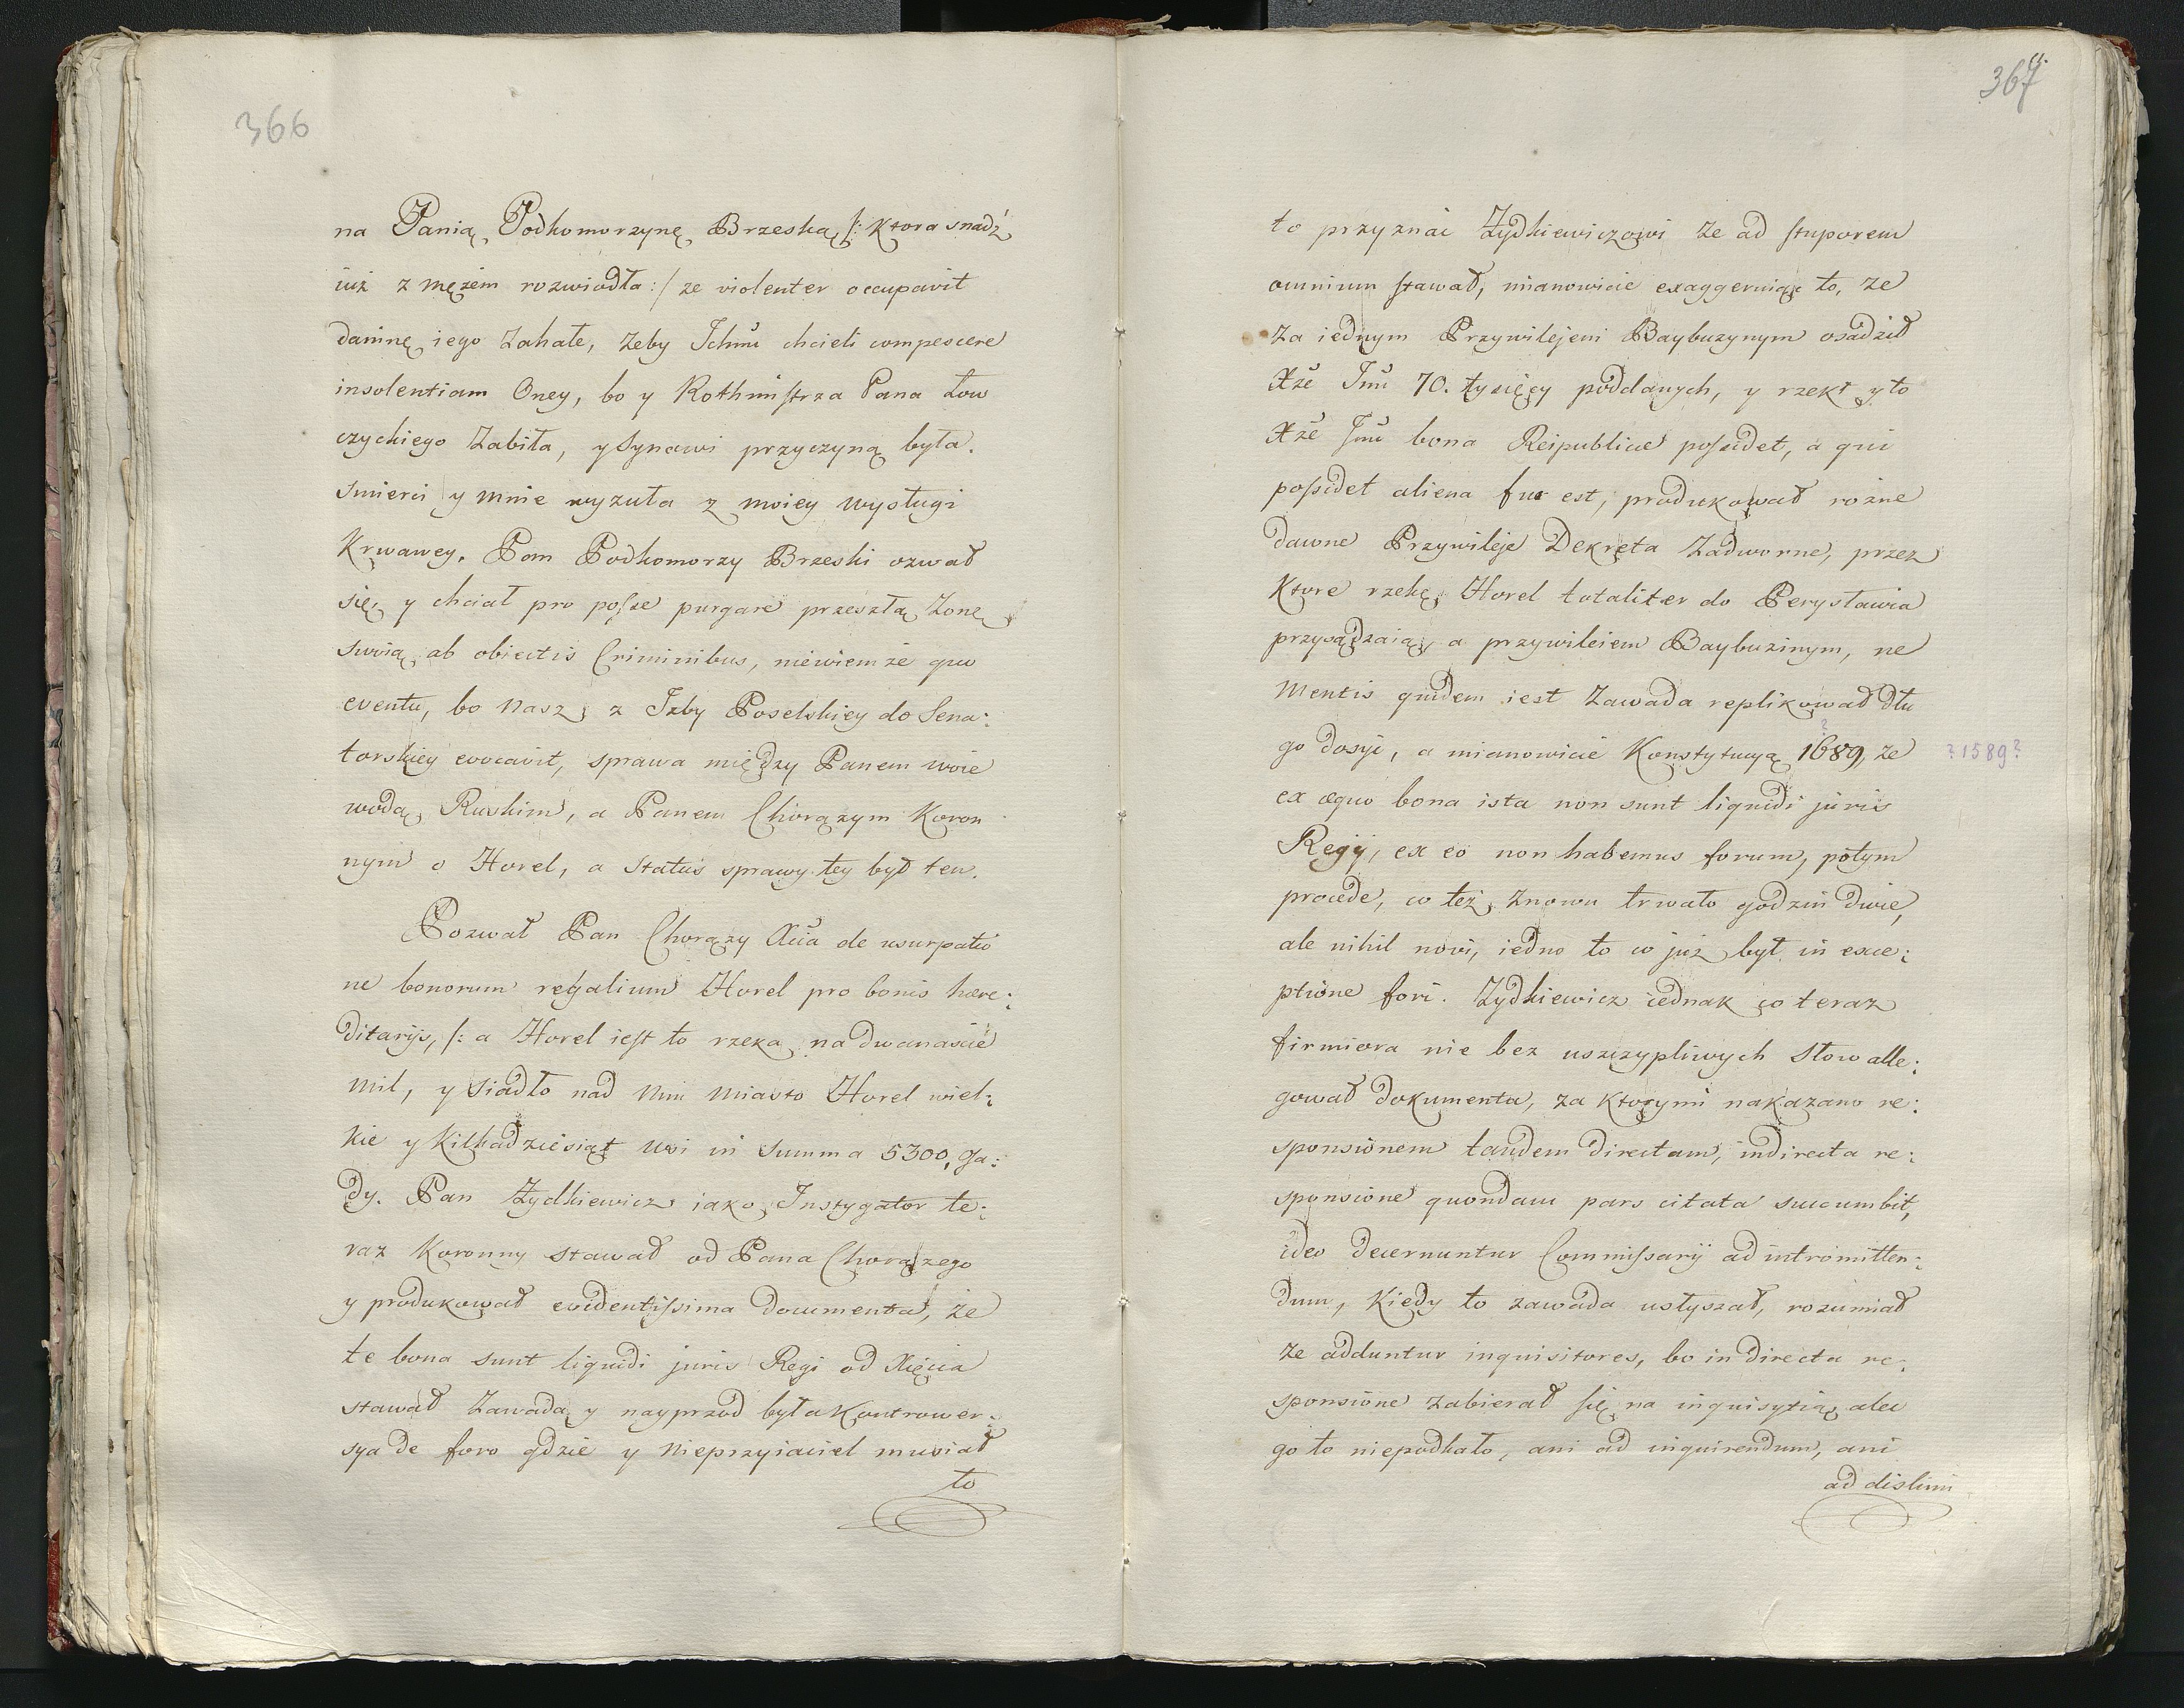 366
na Panią Podkomorzynę Brzeską /: ktora snadź
iuż z mężem rozwiodła :/ ze violenter occupavit
daninę iego Zahale, żeby Ichmć chcieli compescere
insolentiam Oney, bo y Rothmistrza Pana Łow
czyckiego Zabiła, y Synowi przyczyną była.
Smierci y mnie wyzuła z moiey wysługi
Krwawey. Pan Podkomorzy Brzeski ozwał
się, y chciał pro posse purgare przeszłą Zonę
swoią ab obiectis Criminibus, niewiem że quo
eventu, bo Nasz z Izby Poselskiey do Sena:
torskiey evocavit, sprawa między Panem woie
wodą Ruskim, a Panem Chorązym Koron
nym o Horel, a Status sprawy tey był ten.
Pozwał Pan Chorązy Xcia de usurpatio
ne bonorum regalium Horel pro bonis hære:
ditarijs, /: a Horel iest to rzeka na dwanascie
mil, y siadło nad nim Miasto Horel wiel:
kie y kilkadziesiąt wsi in Summa 5300, Ga:
dy. Pan Żydkiewicz iako Instygator te:
raz Koronny stawał od Pana Chorązego
y produkował evidentissima Documenta, że
te bona sunt liquidi juris Regi od Xięcia
stawał Zawada y nayprzod była Kontrower:
sya de foro gdzie y Nieprzyiaciel musiał
to
367
to przyznać Żydkiewiczowi że ad stuporem
omnium stawał, mianowicie exaggeruiąc to, że
za iednym Przywilejem Baybuzynym osadził
Xże Jmć 70. tysięcy poddanych, y rzekł y to
Xże Jmć bona Reipublicæ possidet, a qui
possidet aliena fur est, produkował rożne
dawne Przywileje Dekreta Zadworne, przez
ktore rzekę Horel totaliter do Perysławia
przysądzaią, a przywileiem Baybuzinym, ne
Mentis quidem iest Zawada replikował dłu
go dosyć, a mianowicie Konstytucyą 1689, że
?
?1589?
ex æquo bona ista non sunt liquidi juris
Regÿ, ex eo non habemus forum, potym
procede, co też znowu trwało godzin dwie,
ale nihil novi, iedno to co już był in exce:
ptione fori. Zydkiewicz iednak co teraz
firmiora nie bez uszczypliwych Słow alle:
gował dokumenta, za ktorymi nakazano re:
sponsionem tandem directam, indirecta re:
sponsione quondam pars citata succumbit,
ideo decernuntur Commissarÿ ad intromitten:
dum, Kiedy to zawada usłyszał, rozumiał
że adduntur inquisitores, bo in directa re:
sponsione zabierał się na inquisytią, ale
go to niepodkało, ani ad inquirendum, ani
ad dislimi